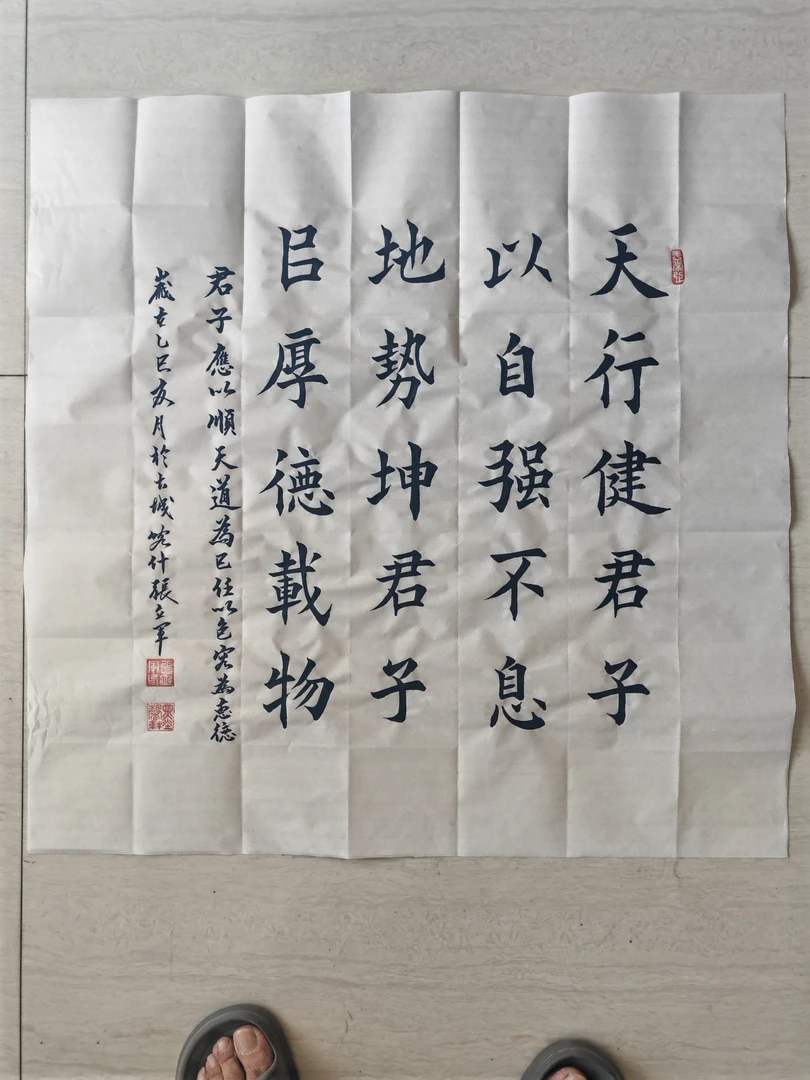 天行健君子
以自强不息
地勢坤君子
㠯厚德載物
君子應以順天道為己任以包容為德
歲在乙巳夏月於古城喀什張立軍